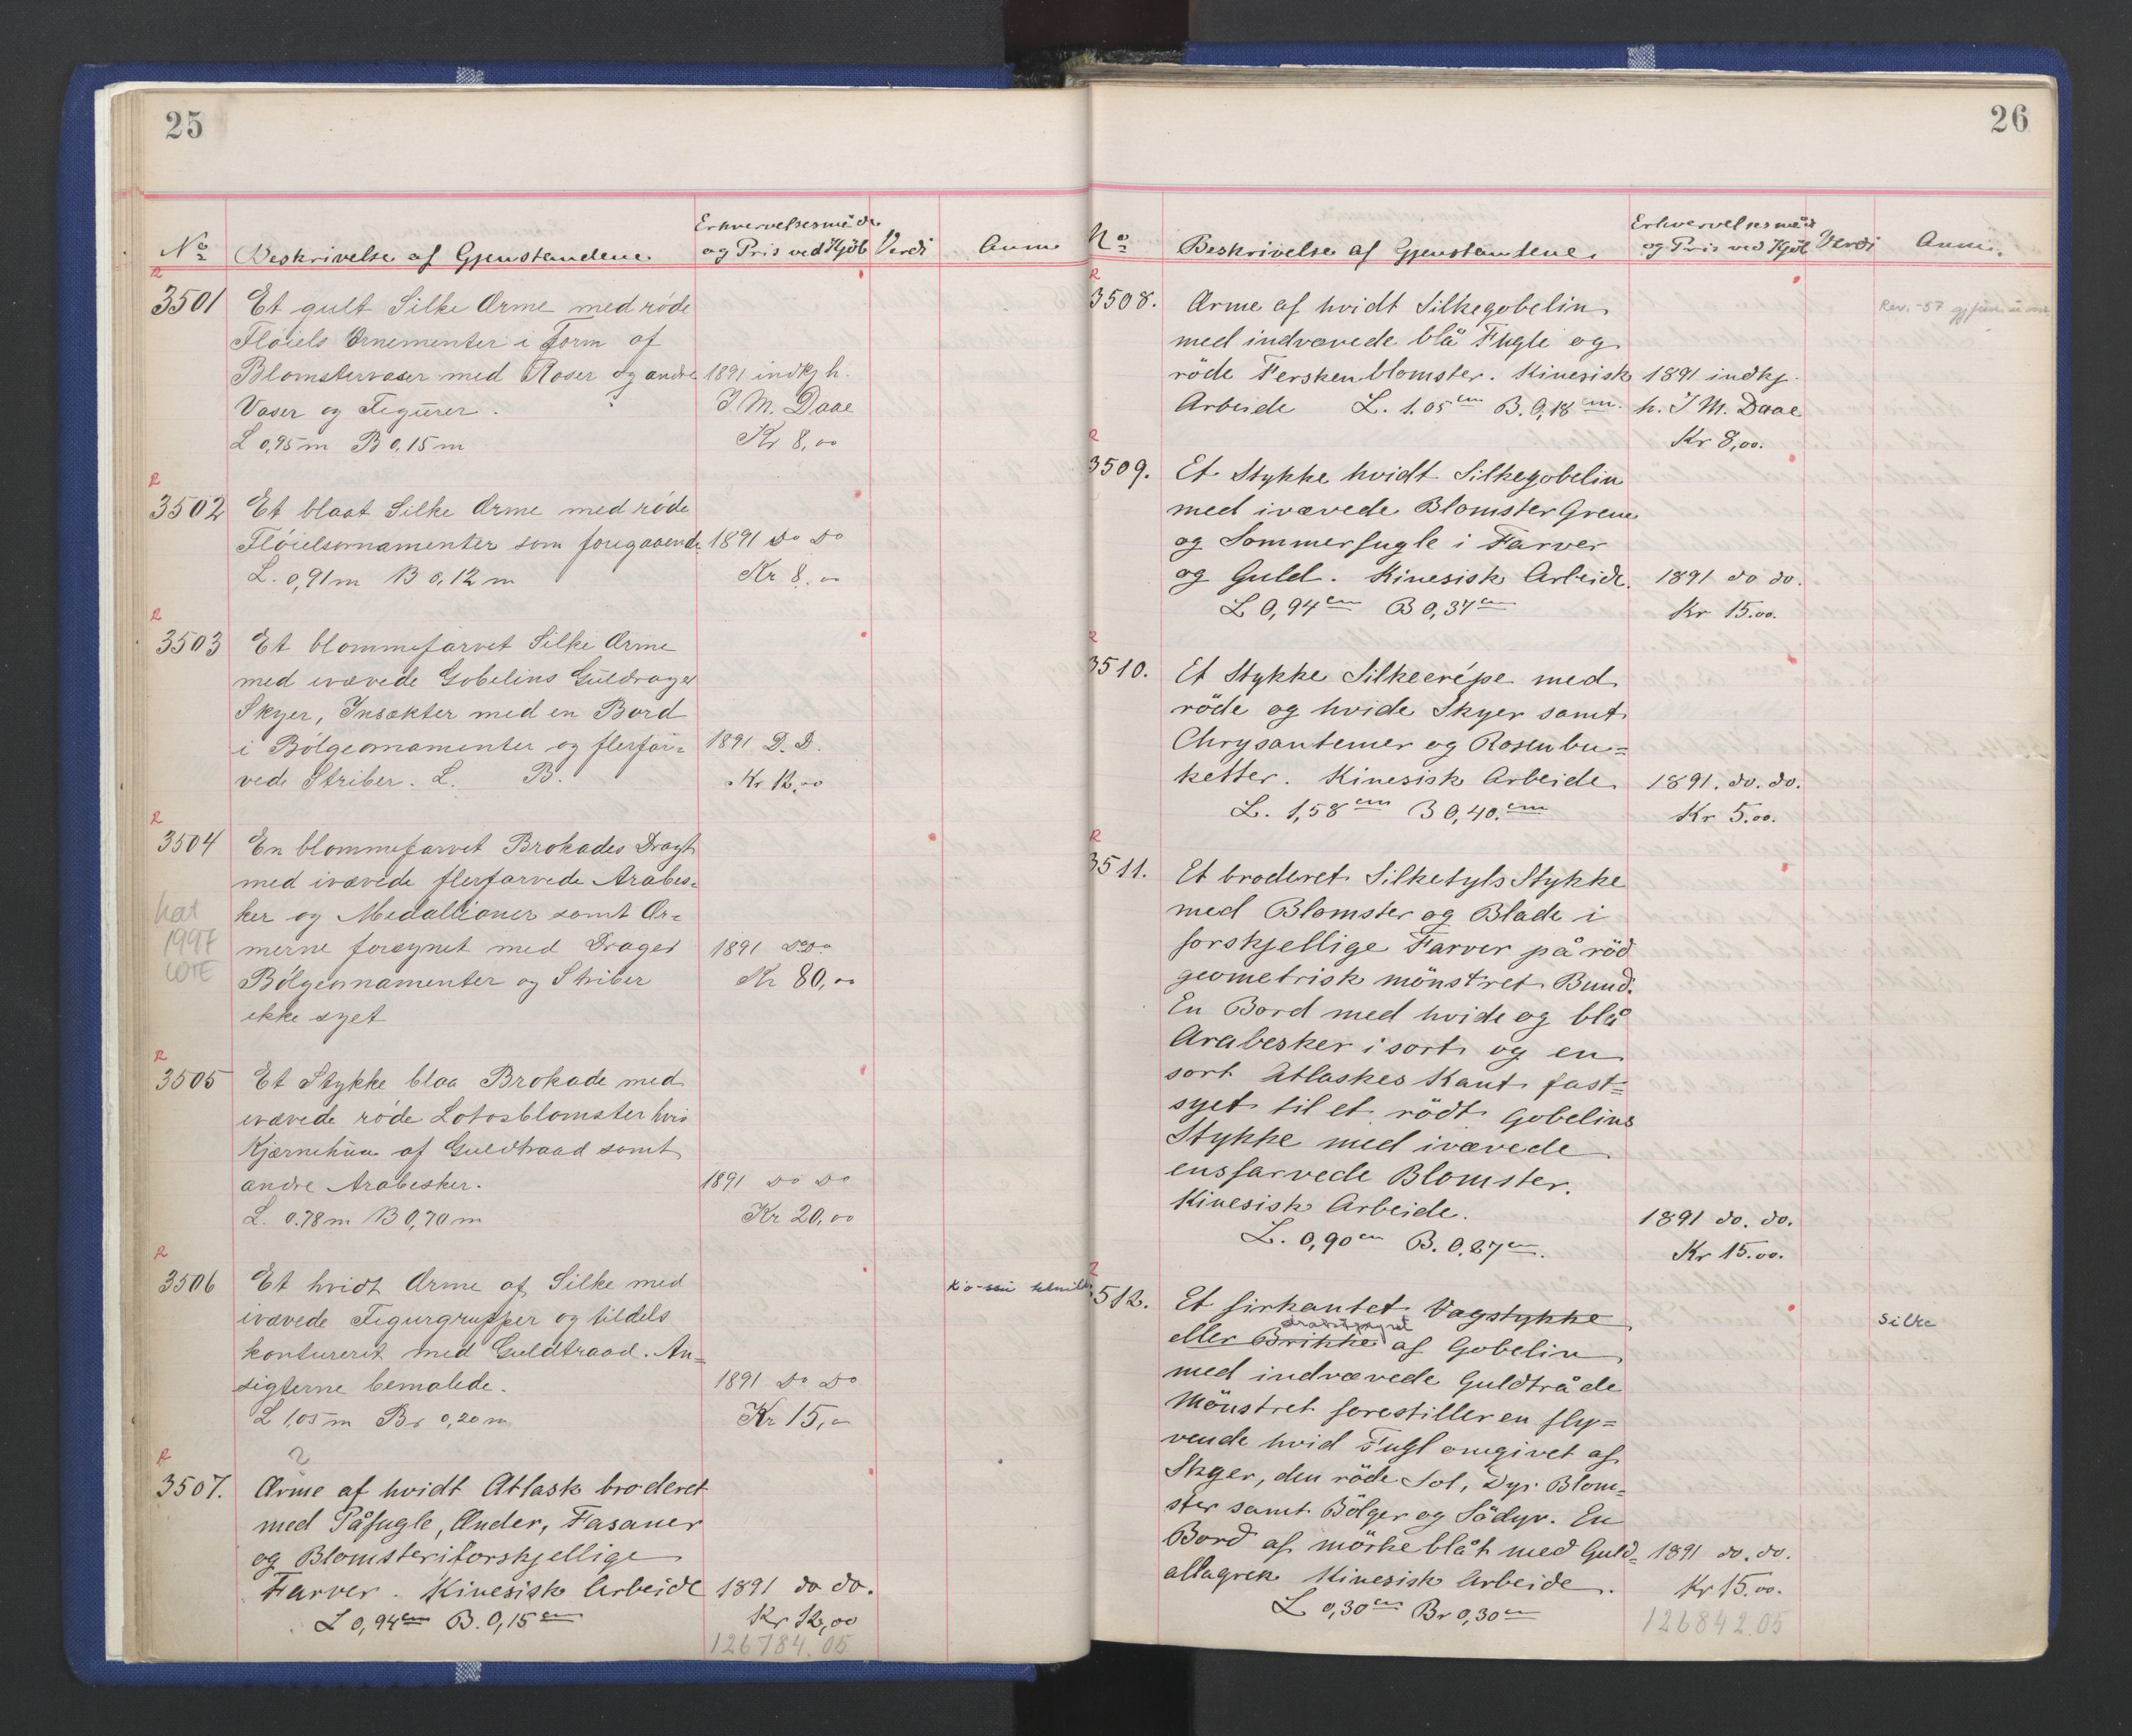 25
No Beskrivelse af Gjenstandene. Erhvervelsesmåde og Pris ved Kjöb Verdi Anm
R
3501 Et gult Silke Ærme med röde
Flöiels Ornementer i Form af
Blomstervaser med Roser og andre 1891 indkj h.
Vaser og Figurer. ? J M. Daae
L 0,95 m B 0,15 m Kr 8,00
R
3502 Et blaat Silke Ærme med röde
Flöielsornamenter som foregaaende 1891 Do Do
L. 0,91 m B 0,12 m Kr 8.00
R
3503 Et blommefarvet Silke Ærme
med ivævede Gobelins Guldrager
Skyer, Insækter med en Bord
i Bölgeornamenter og flerfar= 1891 D. D.
vede Striber. L. B. Kr 12,00
R
3504 En blommefarvet Brokades Dragt
med ivævede flerfarvede Arabes=
ker og Medallioner samt Ær=
merne forsynet med Drager 1891 DoDo
Bölgeornamenter og Striber Kr 80,00
ikke syet
1997
LOTE
R
3505 Et Stykke blaa Brokade med
ivævede röde Lotosblomster hvis
Kjærnehuse af Guldtraad samt
andre Arabesker. 1891 Do Do
L. 0.78 m B 0,70 m Kr 20,00
R
3506 Et hvidt Ærme af Silke med
ivævede Figurgrupper og tildels
kontureret med Guldtraad. An=
sigterne bemalede. 1891 Do Do
L 1,05 m Br 0,20 m Kr 15,00
R ?
3507. Ærme af hvidt Atlask broderet
med Påfugle, Ænder, Fasaner
og Blomster i forskjellige
Farver. Kinesisk Arbeide 1891 do do.
L 0,94 cm B. 0,15 cm Kr 12,00
126784.05
26
No Beskrivelse af Gjenstandene. Erhvervelsesmåde og Pris ved Kjöb Verdi Anm.
R
3508. Ærme af hvidt Silkegobelin Rev. -57
med indvævede blå Fugle og
röde Ferskenblomster. Kinesisk 1891 indkj.
Arbeide L. 1.05 cm B. 0,18 cm. h. J M. Daae
Kr 8,00.
R
3509. Et Stykke hvidt Silkegobelin
med ivævede Blomster Grene
og Sommerfugle i Farver
og Guld. Kinesisk Arbeide. 1891 do do.
L 0,94 cm B 0,37 cm Kr 15.00.
R
3510. Et Stykke Silkecrépe med
röde og hvide Skyer samt
Chrysantemer og Rosenbu=
ketter. Kinesisk Arbeide. 1891. do. do.
L. 1,58 cm B 0,40. cm Kr 5.00.
R
3511. Et broderet Silketyls Stykke
med Blomster og Blade i
forskjellige Farver på röd
geometrisk mönstret Bund.
En Bord med hvide og blå
Arabesker i sort og en
sort Atlaskes Kant fast=
syet til et rödt Gobelins
Stykke med ivævede
ensfarvede Blomster.
Kinesisk Arbeide. 1891 do. do.
L. 0,90 cm B. 0.87 cm. Kr 15.00.
R
3512. Et firkantet Vægstykke Silke
eller Brikke af Gobelin
med indvævede Guldtråde
Mönstret forestiller en fly=
vende hvid Fugl omgivet af
Skyer, den röde Sol, Dyr Blom=
ster samt Bölger og Södyr. En
Bord af mörkeblåt med Guld= 1891 do. do.
allagrek Kinesisk Arbeide. Kr 15.00.
L 0,30 cm Br 0,30 cm
126842.05